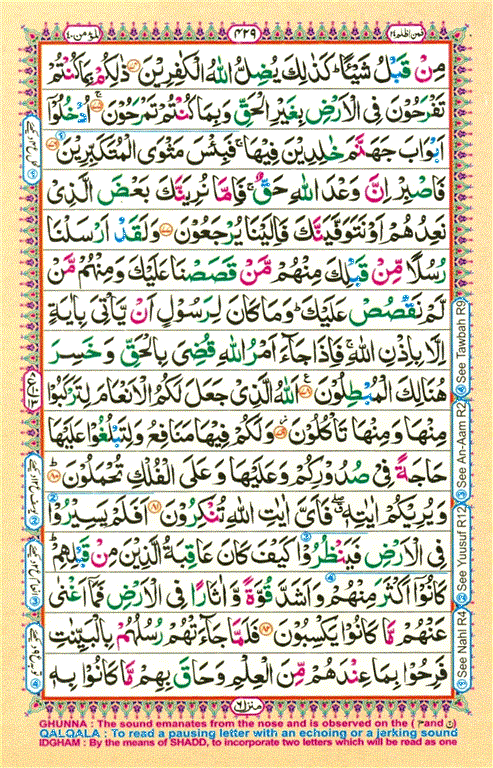 فمن اظلم ٢٤
٤٢٩
المؤمن ٤٠
مِنْ قَبْلُ شَيْئًا ؕ كَذٰلِكَ يُضِلُّ اللّٰهُ الْكٰفِرِيْنَ ﴿۷۴﴾ ذٰلِكُمْ بِمَا كُنْتُمْ
تَفْرَحُوْنَ فِى الْاَرْضِ بِغَيْرِ الْحَقِّ وَبِمَا كُنْتُمْ تَمْرَحُوْنَ ﴿۷۵﴾ اُدْخُلُوْۤا
اَبْوَابَ جَهَنَّمَ خٰلِدِيْنَ فِيْهَا ۚ فَبِئْسَ مَثْوَى الْمُتَكَبِّرِيْنَ ﴿۷۶﴾
فَاصْبِرْ اِنَّ وَعْدَ اللّٰهِ حَقٌّ ۚ فَاِمَّا نُرِيَنَّكَ بَعْضَ الَّذِىْ
نَعِدُهُمْ اَوْ نَتَوَفَّيَنَّكَ فَاِلَيْنَا يُرْجَعُوْنَ ﴿۷۷﴾ وَلَقَدْ اَرْسَلْنَا
رُسُلًا مِّنْ قَبْلِكَ مِنْهُمْ مَّنْ قَصَصْنَا عَلَيْكَ وَمِنْهُمْ مَّنْ
لَّمْ نَقْصُصْ عَلَيْكَ ؕ وَمَا كَانَ لِرَسُوْلٍ اَنْ يَّاْتِىَ بِاٰيَةٍ
اِلَّا بِاِذْنِ اللّٰهِ ۚ فَاِذَا جَآءَ اَمْرُ اللّٰهِ قُضِىَ بِالْحَقِّ وَخَسِرَ
هُنَالِكَ الْمُبْطِلُوْنَ ﴿۷۸﴾ اَللّٰهُ الَّذِىْ جَعَلَ لَكُمُ الْاَنْعَامَ لِتَرْكَبُوْا
مِنْهَا وَمِنْهَا تَاْكُلُوْنَ ﴿۷۹﴾ وَلَكُمْ فِيْهَا مَنَافِعُ وَلِتَبْلُغُوْا عَلَيْهَا
حَاجَةً فِىْ صُدُوْرِكُمْ وَعَلَيْهَا وَعَلَى الْفُلْكِ تُحْمَلُوْنَ ﴿۸۰﴾
وَيُرِيْكُمْ اٰيٰتِهٖ ۖ فَاَىَّ اٰيٰتِ اللّٰهِ تُنْكِرُوْنَ ﴿۸۱﴾ اَفَلَمْ يَسِيْرُوْا
فِى الْاَرْضِ فَيَنْظُرُوْا كَيْفَ كَانَ عَاقِبَةُ الَّذِيْنَ مِنْ قَبْلِهِمْ ؕ
كَانُوْۤا اَكْثَرَ مِنْهُمْ وَاَشَدَّ قُوَّةً وَّاٰثَارًا فِى الْاَرْضِ فَمَاۤ اَغْنٰى
عَنْهُمْ مَّا كَانُوْا يَكْسِبُوْنَ ﴿۸۲﴾ فَلَمَّا جَآءَتْهُمْ رُسُلُهُمْ بِالْبَيِّنٰتِ
فَرِحُوْا بِمَا عِنْدَهُمْ مِّنَ الْعِلْمِ وَحَاقَ بِهِمْ مَّا كَانُوْا بِهٖ
① See Nahl R4 ② See Yuusuf R12 ③ See An-Aam R2 ④ See Tawbah R9
منزل ٦
GHUNNA : The sound emanates from the nose and is observed on the ( م and ن)
QALQALA : To read a pausing letter with an echoing or a jerking sound
IDGHAM : By the means of SHADD, to incorporate two letters which will be read as one